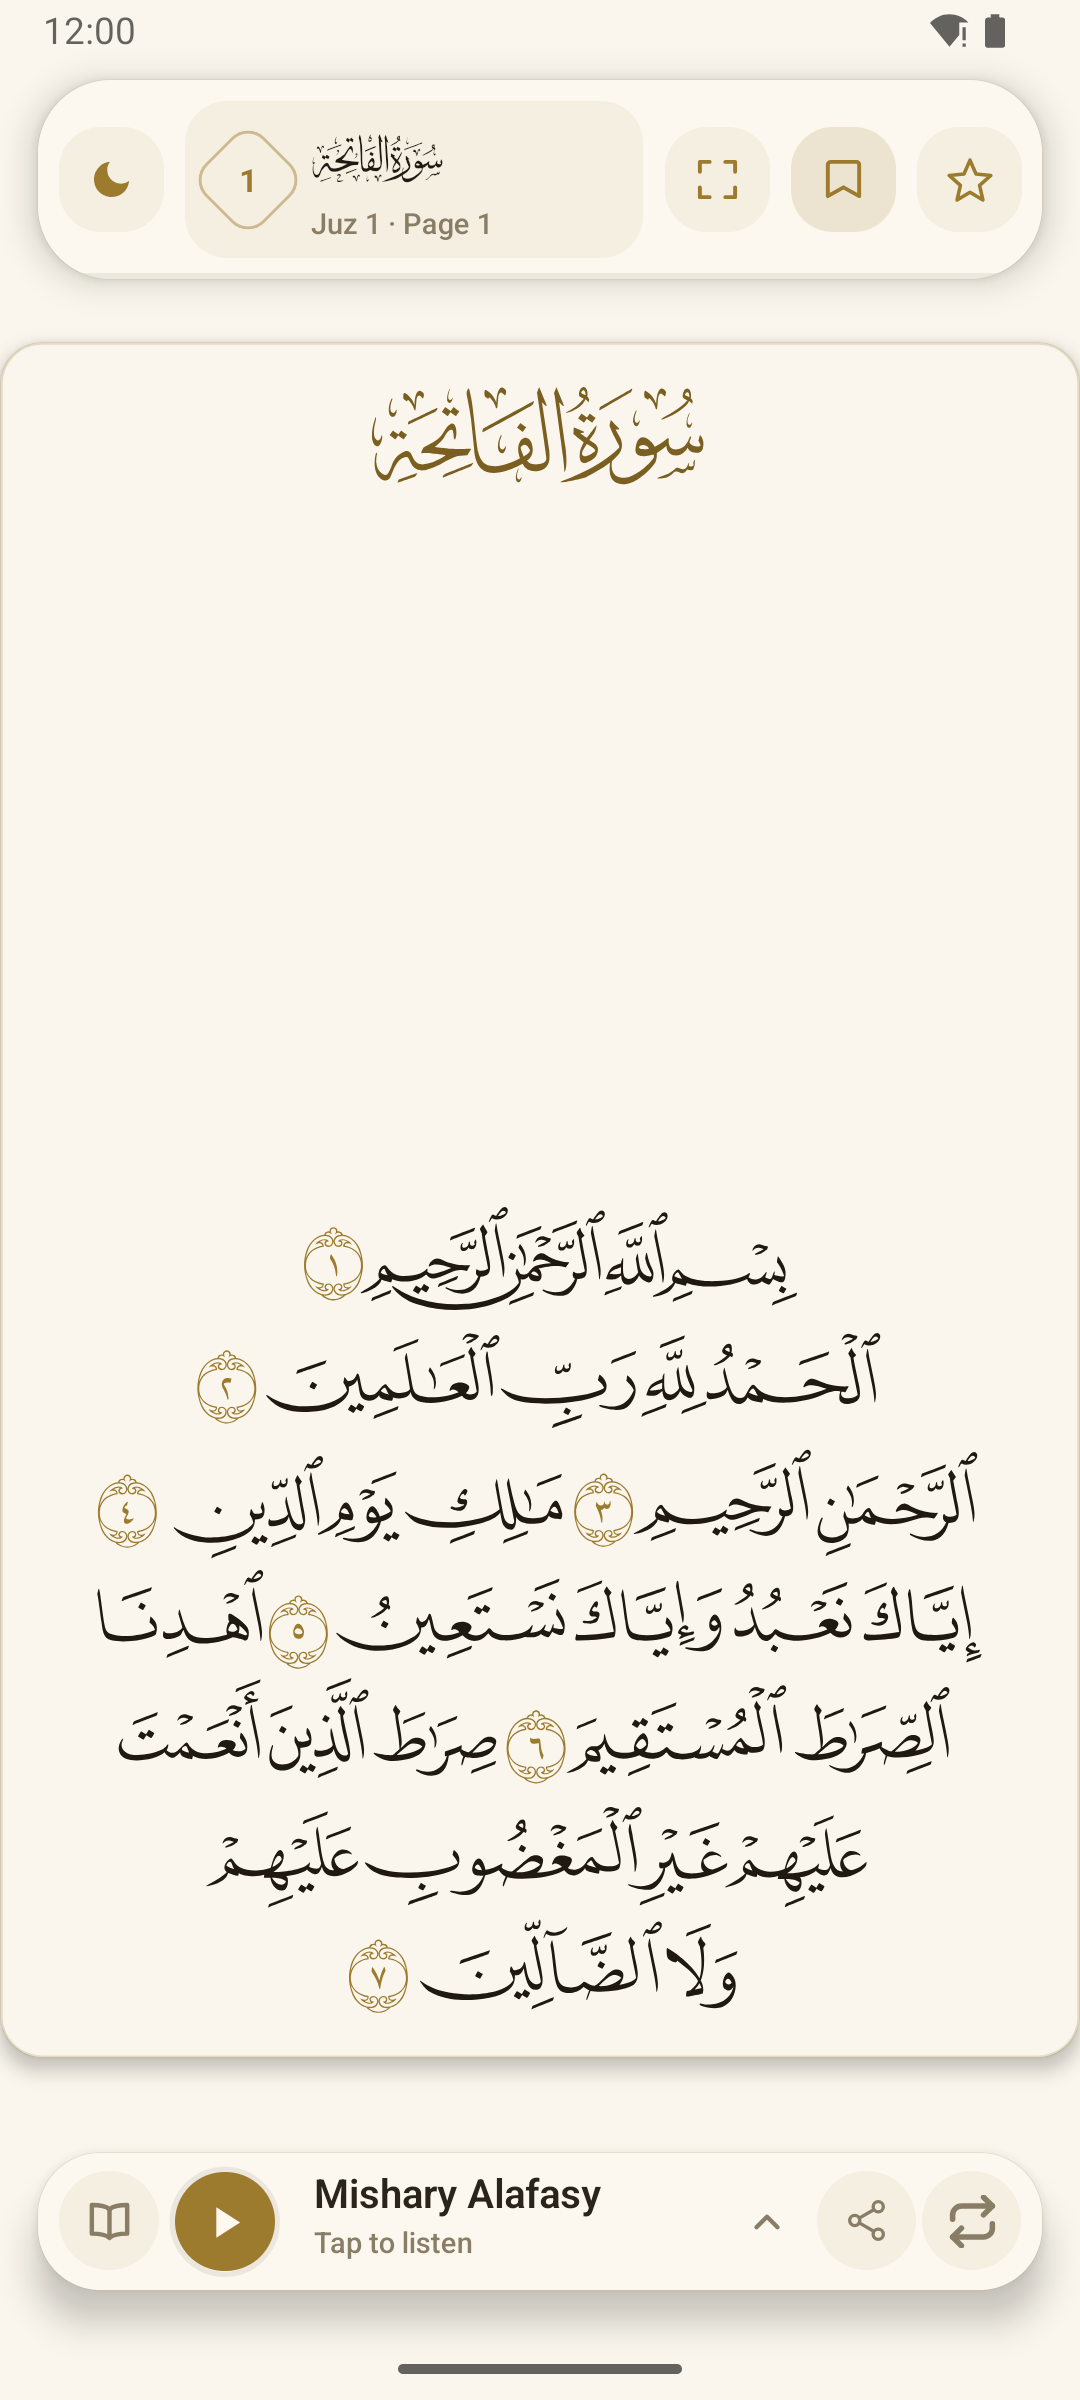 12:00
1
سُورَةُ الفَاتِحَةِ
Juz 1 · Page 1
سُورَةُ الفَاتِحَةِ
بِسْمِ ٱللَّهِ ٱلرَّحْمَٰنِ ٱلرَّحِيمِ ١
ٱلْحَمْدُ لِلَّهِ رَبِّ ٱلْعَٰلَمِينَ ٢
ٱلرَّحْمَٰنِ ٱلرَّحِيمِ ٣ مَٰلِكِ يَوْمِ ٱلدِّينِ ٤
إِيَّاكَ نَعْبُدُ وَإِيَّاكَ نَسْتَعِينُ ٥ ٱهْدِنَا
ٱلصِّرَٰطَ ٱلْمُسْتَقِيمَ ٦ صِرَٰطَ ٱلَّذِينَ أَنْعَمْتَ
عَلَيْهِمْ غَيْرِ ٱلْمَغْضُوبِ عَلَيْهِمْ
وَلَا ٱلضَّآلِّينَ ٧
Mishary Alafasy
Tap to listen